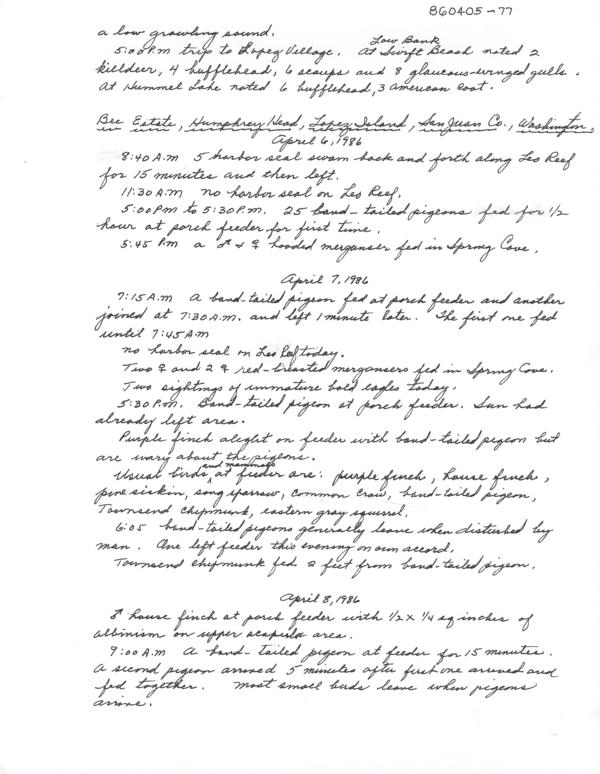 860405-77
a low growling sound.
5:00 P.m trip to Lopez Village. At Low Bank Swift Beach noted 2
killdeer, 4 bufflehead, 6 scaups and 8 glaucous-winged gulls.
At Hummel Lake noted 6 bufflehead, 3 american coot.
Bee Estate, Humphrey Head, Lopez Island, San Juan Co., Washington.
April 6, 1986
8:40 A.m 5 harbor seal swam back and forth along Leo Reef
for 15 minutes and then left.
11:30 A.m no harbor seal on Leo Reef.
5:00 P.m to 5:30 P.m. 25 band-tailed pigeons fed for 1/2
hour at porch feeder for first time.
5:45 P.m a ♂ & ♀ hooded merganser fed in Spring Cove.
April 7, 1986
7:15 A.m A band-tailed pigeon fed at porch feeder and another
joined at 7:30 A.m. and left 1 minute later. The first one fed
until 7:45 A.m
no harbor seal on Leo Reef today.
Two ♀ and 2 ♀ red-breasted mergansers fed in Spring Cove.
Two sightings of immature bald eagles today.
5:30 P.m. Band-tailed pigeon at porch feeder. Sun had
already left area.
Purple finch alight on feeder with band-tailed pigeon but
are wary about the pigeons.
Usual birds and mammals at feeder are: purple finch, house finch,
pine siskin, song sparrow, common crow, band-tailed pigeon,
Townsend chipmunk, eastern gray squirrel.
6:05 band-tailed pigeons generally leave when disturbed by
man. One left feeder this evening on own accord.
Townsend chipmunk fed 2 feet from band-tailed pigeon.
April 8, 1986
♂ house finch at porch feeder with 1/2 x 1/4 sq inches of
albinism on upper scapula area.
9:00 A.m A band-tailed pigeon at feeder for 15 minutes.
A second pigeon arrived 5 minutes after first one arrived and
fed together. most small birds leave when pigeons
arrive.